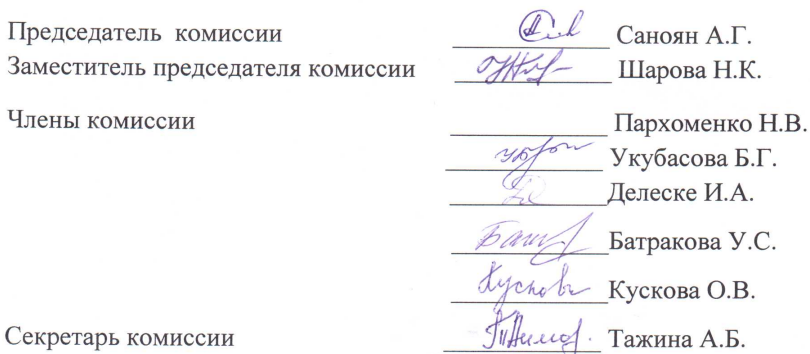 Председатель комиссии Саноян А.Г.
Заместитель председателя комиссии Шарова Н.К.
Члены комиссии Пархоменко Н.В.
Укубасова Б.Г.
Делеске И.А.
Батракова У.С.
Кускова О.В.
Секретарь комиссии Тажина А.Б.